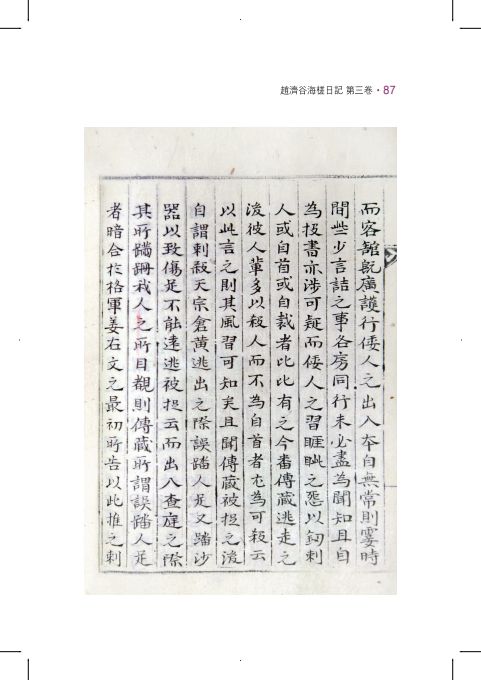 趙濟谷海槎日記 第三卷 • 87
而客館旣廣護行倭人之出入本自無常則霎時
間些少言詰之事各房同行未必盡為聞知且自
為投書亦涉可疑而倭人之習睚眦之怨以釰刺
人或自首或自裁者比比有之今番傳藏逃走之
後彼人輩多以殺人而不為自首者尤為可殺云
以此言之則其風習可知矣且聞傳藏被捉之後
自謂刺殺天宗倉黃逃出之際誤踏人足又踏沙
器以致傷足不能遠逃被捉云而出入查庭之際
其所蹣跚我人之所目覩則傳藏所謂誤踏人足
者暗合於格軍姜右文之最初所告以此推之刺